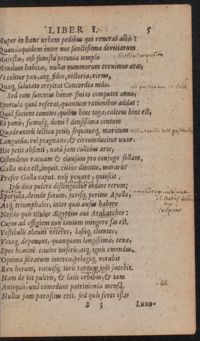 LIBER I. 5
Nuper in hanc urbem pedibus qui venerat albis?
Quandoquidem inter nos sanctissima divitiarum
Majestas, etsi funesta pecunia templo
Nondum habitas, nullas nummorum ereximus aras,
Ut colitur pax, atq; fides, victoria, virtus,
Quaeq; salutato crepitat Concordia nido.
Sed cum summus honor finito computet anno
Sportula quid referat, quantum rationibus addat:
Quid facient comites, quibus hinc toga, calceus hinc est,
Et panis, fumusq; domi? densissima centum
Quadrantes lectica petit, sequiturq; maritum
Languida, vel praegnans, & circumducitur uxor.
Hic petit absenti, nota jam callidus arte,
Ostendens vacuam & clausam pro conjuge sellam,
Galla mea est, inquit, citius dimitte, moraris?
Profer Galla caput. noli vexare, quiescit.
Ipse dies pulcro distinguitur ordine rerum;
Sportula, deinde forum, jurisq; peritus Apollo,
Atq; triumphales, inter quas ausus habere
Nescio quis titulos Ægyptius atq; Arabarches:
Cujus ad effigiem non tantum mingere fas est.
Vestibulis abeunt veteres, lassiq; clientes,
Votaq; deponunt, quanquam longissima, coenae,
Spes homini. caules miseris, atq; ignis emendus.
Optima silvarum interea, pelagiq; vorabit
Rex horum, vacuisq; toris tantum ipse jacebit.
Nam de tot pulcris, & latis orbibus, & tam
Antiquis, unâ comedunt patrimonia mensâ,
Nullus jam parasitus erit. sed quis feret istas
B 3 Luxu-